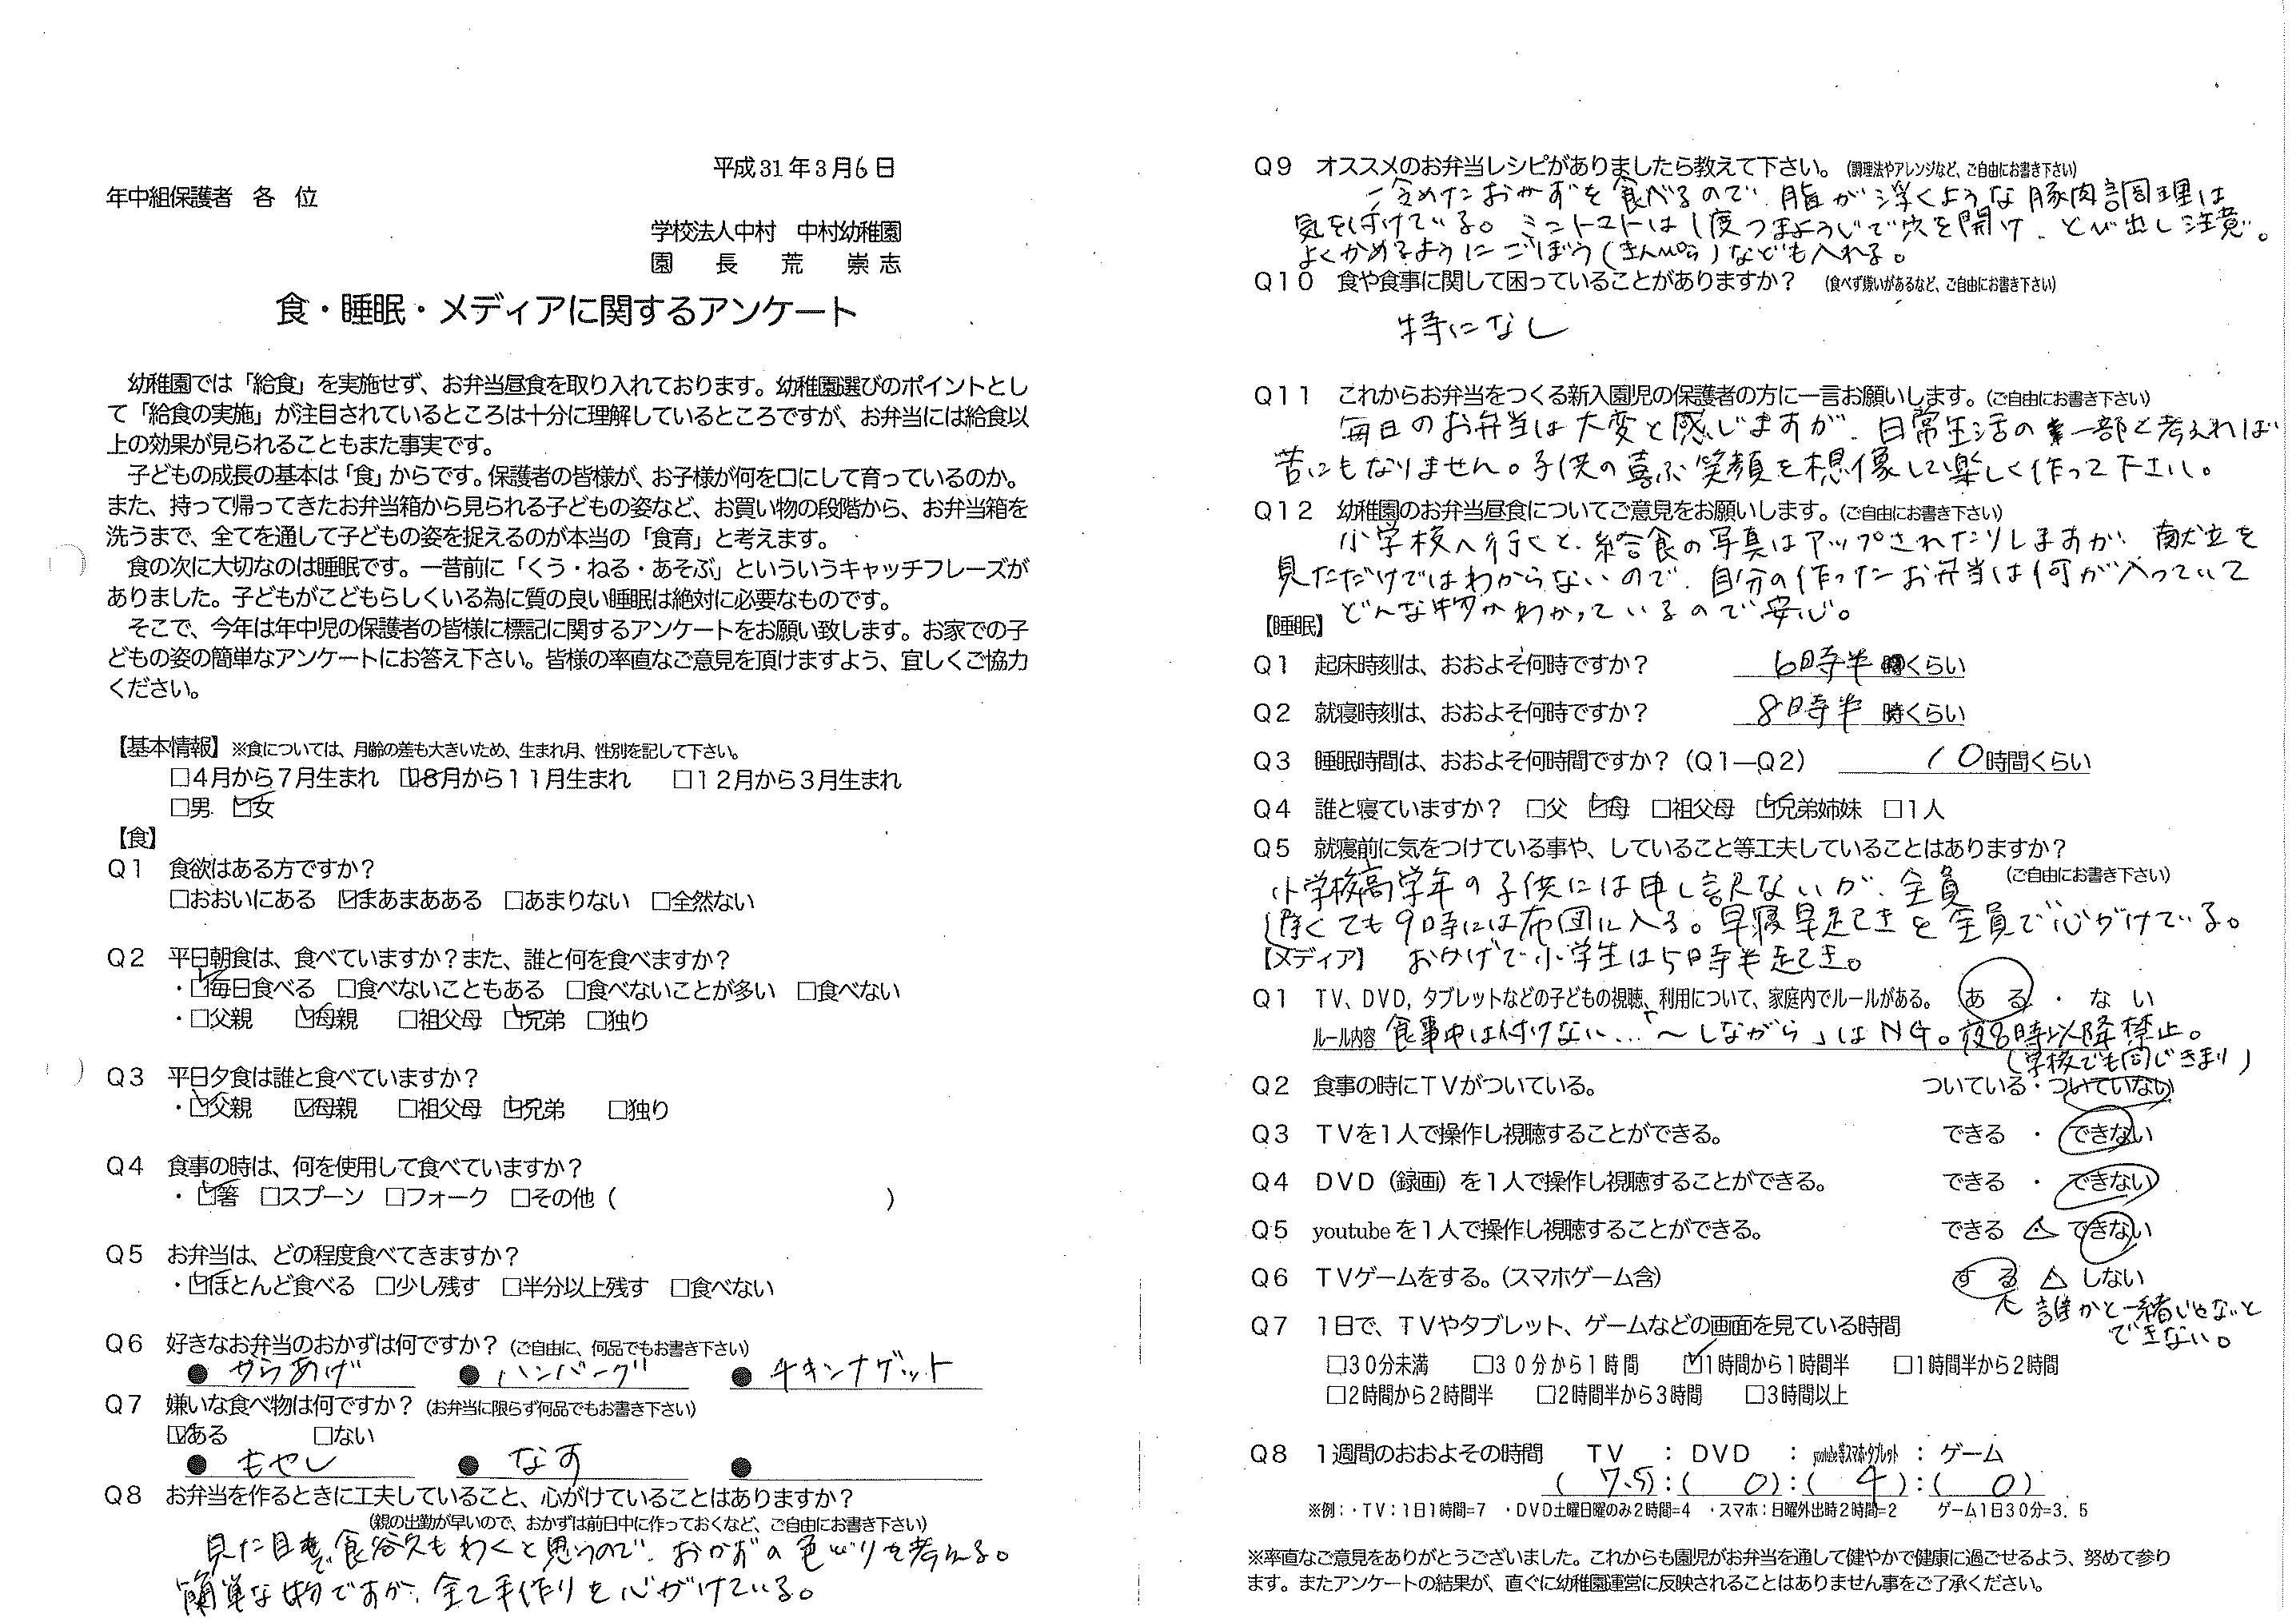 平成31年3月6日
年中組保護者 各 位
学校法人中村 中村幼稚園
園 長 荒 崇志
食・睡眠・メディアに関するアンケート
幼稚園では「給食」を実施せず、お弁当昼食を取り入れております。幼稚園選びのポイントとし
て「給食の実施」が注目されているところは十分に理解しているところですが、お弁当には給食以
上の効果が見られることもまた事実です。
子どもの成長の基本は「食」からです。保護者の皆様が、お子様が何を口にして育っているのか。
また、持って帰ってきたお弁当箱から見られる子どもの姿など、お買い物の段階から、お弁当箱を
洗うまで、全てを通して子どもの姿を捉えるのが本当の「食育」と考えます。
食の次に大切なのは睡眠です。一昔前に「くう・ねる・あそぶ」といういうキャッチフレーズが
ありました。子どもがこどもらしくいる為に質の良い睡眠は絶対に必要なものです。
そこで、今年は年中児の保護者の皆様に標記に関するアンケートをお願い致します。お家での子
どもの姿の簡単なアンケートにお答え下さい。皆様の率直なご意見を頂けますよう、宜しくご協力
ください。
【基本情報】※食については、月齢の差も大きいため、生まれ月、性別を記して下さい。
□4月から7月生まれ ☑8月から11月生まれ □12月から3月生まれ
□男 ☑女
【食】
Q1 食欲はある方ですか？
□おおいにある ☑まあまあある □あまりない □全然ない
Q2 平日朝食は、食べていますか？また、誰と何を食べますか？
・☑毎日食べる □食べないこともある □食べないことが多い □食べない
・□父親 ☑母親 □祖父母 ☑兄弟 □独り
Q3 平日夕食は誰と食べていますか？
・☑父親 ☑母親 □祖父母 ☑兄弟 □独り
Q4 食事の時は、何を使用して食べていますか？
・☑箸 □スプーン □フォーク □その他（ ）
Q5 お弁当は、どの程度食べてきますか？
・☑ほとんど食べる □少し残す □半分以上残す □食べない
Q6 好きなお弁当のおかずは何ですか？（ご自由に、何品でもお書き下さい）
● からあげ ● ハンバーグ ● チキンナゲット
Q7 嫌いな食べ物は何ですか？（お弁当に限らず何品でもお書き下さい）
☑ある □ない
● もやし ● なす ●
Q8 お弁当を作るときに工夫していること、心がけていることはありますか？
（親の出勤が早いので、おかずは前日中に作っておくなど、ご自由にお書き下さい）
見た目で食欲もわくと思うので、おかずの色どりを考える。
簡単な物ですが、全て手作りを心がけている。
Q9 オススメのお弁当レシピがありましたら教えて下さい。（調理法やアレンジなど、ご自由にお書き下さい）
冷めたおかずを食べるので、脂が浮くような豚肉調理は
気を付けている。ミニトマトは1度つまようじで穴を開け、とび出し注意。
よくかめるようにごぼう（きんぴら）なども入れる。
Q10 食や食事に関して困っていることがありますか？（食べず嫌いがあるなど、ご自由にお書き下さい）
特になし
Q11 これからお弁当をつくる新入園児の保護者の方に一言お願いします。（ご自由にお書き下さい）
毎日のお弁当は大変と感じますが、日常生活の一部と考えれば
苦にもなりません。子供の喜ぶ笑顔を想像して楽しく作って下さい。
Q12 幼稚園のお弁当昼食についてご意見をお願いします。（ご自由にお書き下さい）
小学校へ行くと、給食の写真はアップされたりしますが、献立を
見ただけではわからないので、自分の作ったお弁当は何が入っていて
どんな物かわかっているので安心。
【睡眠】
Q1 起床時刻は、おおよそ何時ですか？ 6時半時くらい
Q2 就寝時刻は、おおよそ何時ですか？ 8時半時くらい
Q3 睡眠時間は、おおよそ何時間ですか？（Q1―Q2） 10時間くらい
Q4 誰と寝ていますか？ □父 ☑母 □祖父母 ☑兄弟姉妹 □1人
Q5 就寝前に気をつけている事や、していること等工夫していることはありますか？
（ご自由にお書き下さい）
小学校高学年の子供には申し訳ないが、全員
遅くても9時には布団に入る。早寝早起きを全員で心がけている。
おかげで小学生は5時半起き。
【メディア】
Q1 TV、DVD, タブレットなどの子どもの視聴、利用について、家庭内でルールがある。 ある・ない
ルール内容 食事中は付けない…「～しながら」はNG。夜8時以降禁止。
（学校でも同じきまり）
Q2 食事の時にTVがついている。 ついている・ついていない
Q3 TVを1人で操作し視聴することができる。 できる ・ できない
Q4 DVD（録画）を1人で操作し視聴することができる。 できる ・ できない
Q5 youtubeを1人で操作し視聴することができる。 できる △ できない
Q6 TVゲームをする。（スマホゲーム含） する △ しない
誰かと一緒じゃないと
できない。
Q7 1日で、TVやタブレット、ゲームなどの画面を見ている時間
□30分未満 □30分から1時間 ☑1時間から1時間半 □1時間半から2時間
□2時間から2時間半 □2時間半から3時間 □3時間以上
Q8 1週間のおおよその時間 TV ：DVD ：youtube等スマホ・タブレット：ゲーム
（ 7.5）：（ 0）：（ 4）：（ 0）
※例：・TV：1日1時間=7 ・DVD土曜日曜のみ2時間=4 ・スマホ：日曜外出時2時間=2 ゲーム1日30分=3.5
※率直なご意見をありがとうございました。これからも園児がお弁当を通して健やかで健康に過ごせるよう、努めて参り
ます。またアンケートの結果が、直ぐに幼稚園運営に反映されることはありません事をご了承ください。